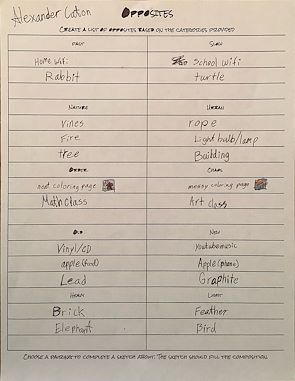 Alexander Cation OPPOSITES
CREATE A LIST OF OPPOSITES BASED ON THE CATEGORIES PROVIDED
FAST SLOW
Home Wifi School Wifi
Rabbit turtle
NATURE URBAN
Vines rope
Fire Light bulb/lamp
tree Building
ORDER CHAOS
neat coloring page messy coloring page
Math Class Art class
OLD NEW
Vinyl/CD Youtube music
apple (food) Apple (phone)
Lead Graphite
HEAVY LIGHT
Brick Feather
Elephant Bird
CHOOSE A PAIRING TO COMPLETE A SKETCH ABOUT. THE SKETCH SHOULD FILL THE COMPOSITION.